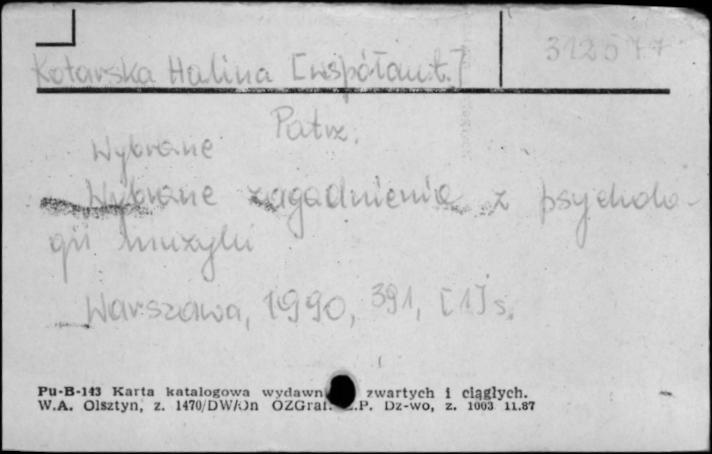 312577
Kotarska Halina [współaut.]
Patrz.
Wybrane
Wybrane zagadnienia z psycholo-
gii muzyki
Warszawa, 1990, 391, [1] s.
Pu-B-143 Karta katalogowa wydawn zwartych i ciągłych.
W.A. Olsztyn, z. 1470/DW/On OZGraf. .P. Dz-wo, z. 1003 11.87